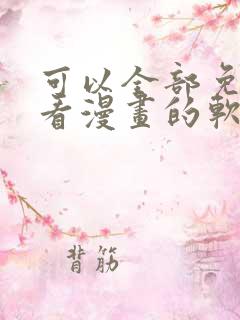 可以全部免
看漫畫的軟
背筋